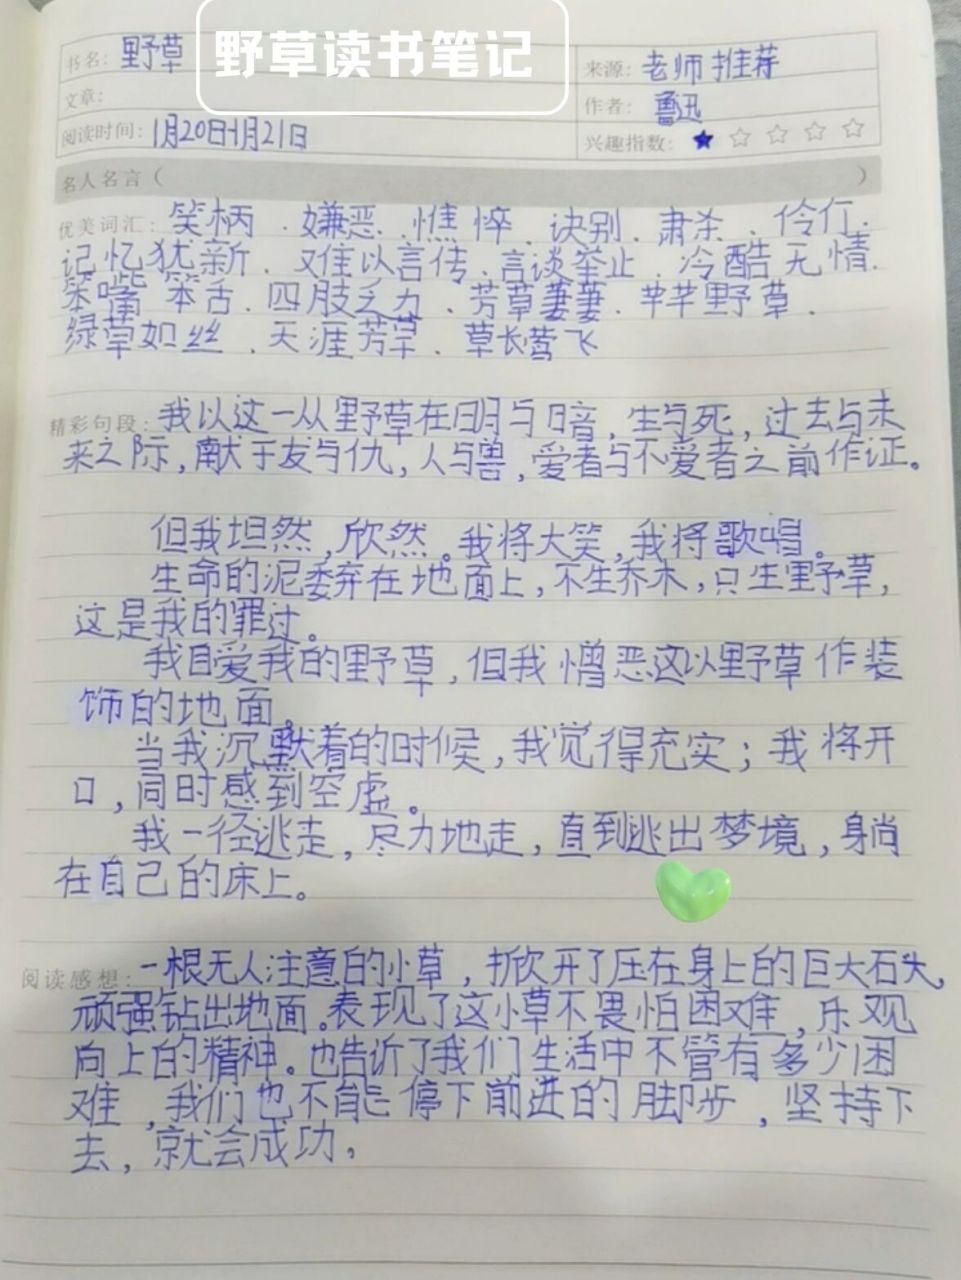 野草读书笔记
书名：野草
来源：老师推荐
文章：
作者：鲁迅
阅读时间：1月20日-1月21日
兴趣指数：★☆☆☆☆
名人名言（ ）
优美词汇：笑柄．嫌恶．憔悴．诀别．肃杀．伶仃．
记忆犹新．难以言传．言谈举止．冷酷无情．
笨嘴笨舌．四肢乏力．芳草萋萋．芊芊野草．
绿草如丝．天涯芳草．草长莺飞
精彩句段：我以这一丛野草在明与暗，生与死，过去与未
来之际，献于友与仇，人与兽，爱者与不爱者之前作证。
但我坦然，欣然。我将大笑，我将歌唱。
生命的泥委弃在地面上，不生乔木，只生野草，
这是我的罪过。
我自爱我的野草，但我憎恶这以野草作装
饰的地面。
当我沉默着的时候，我觉得充实；我将开
口，同时感到空虚。
我一径逃走，尽力地走，直到逃出梦境，躺
在自己的床上。
阅读感想：一根无人注意的小草，掀开了压在身上的巨大石头，
顽强钻出地面。表现了这小草不畏怕困难，乐观
向上的精神。也告诉了我们生活中不管有多少困
难，我们也不能停下前进的脚步，坚持下
去，就会成功，